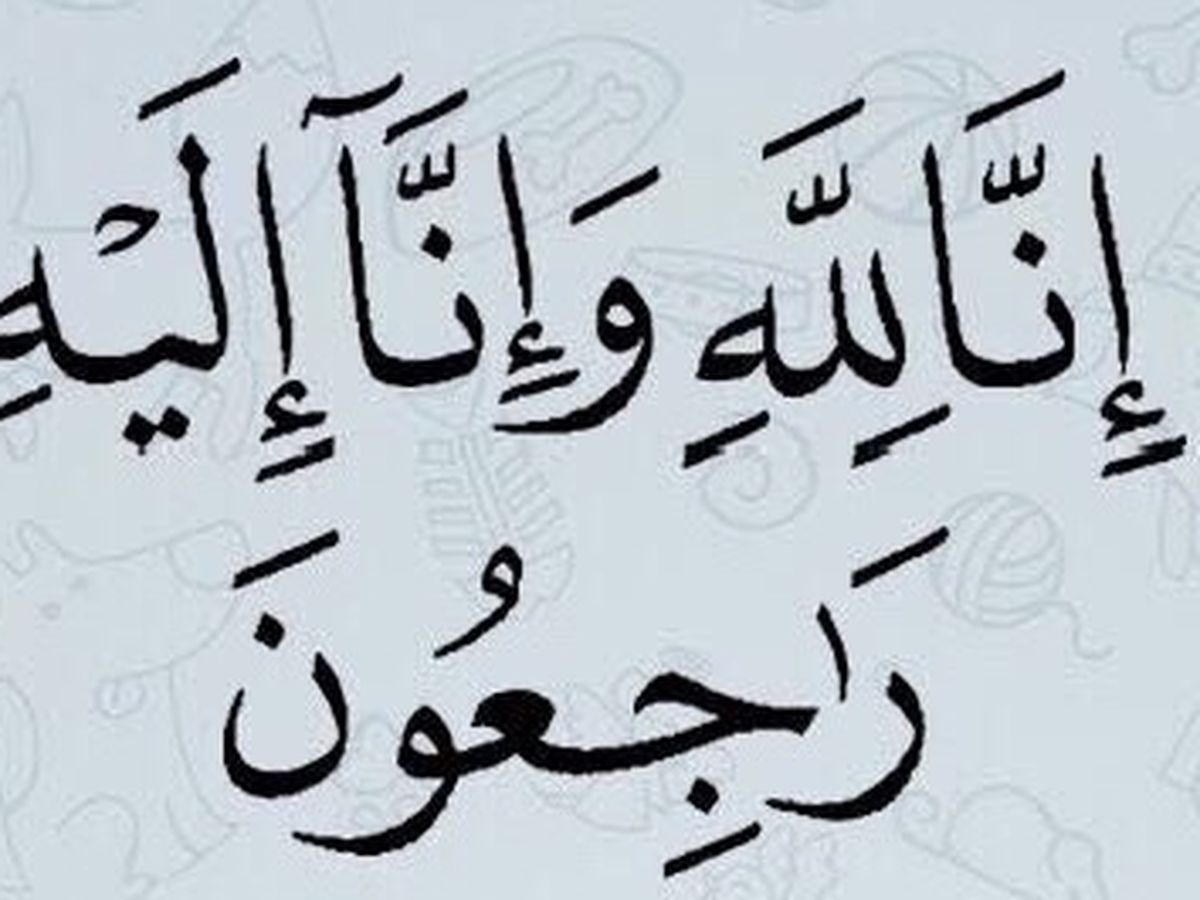 إِنَّا لِلَّهِ وَإِنَّآ إِلَيْهِ
رَاجِعُونَ